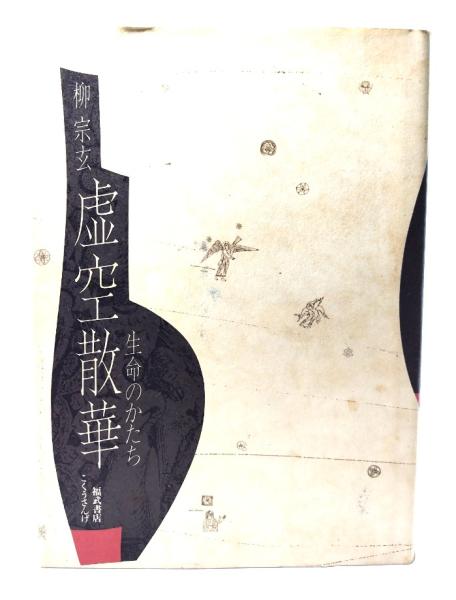 柳宗玄
虚空散華
生命のかたち
福武書店
こくうさんげ